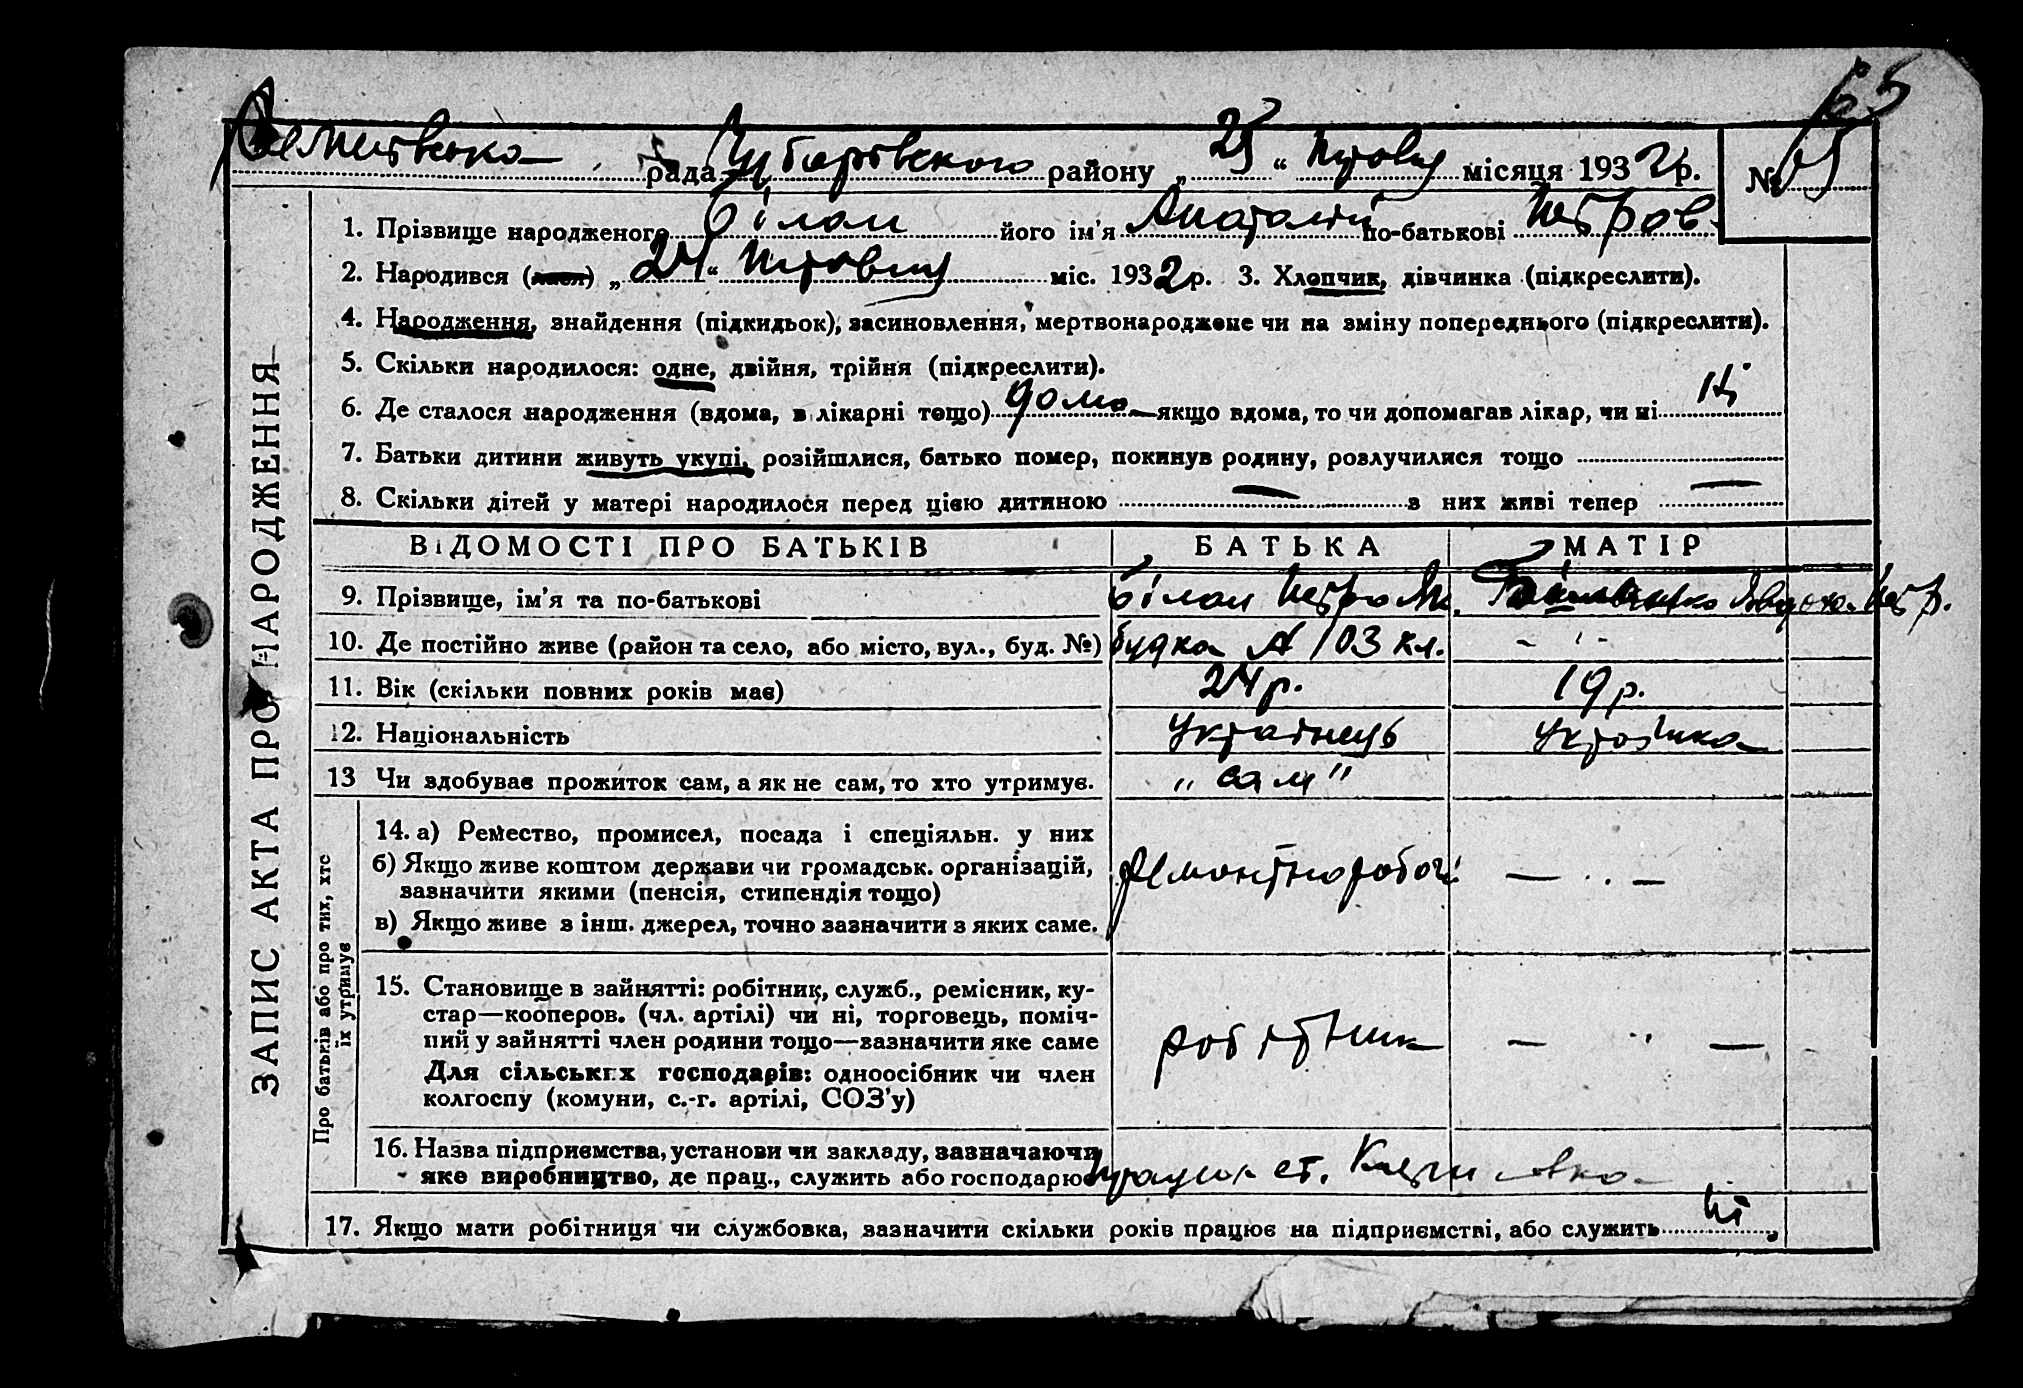 65
рада Чубарівського району „ 25 “ Травня місяця 1932 р. №
1. Прізвище народженого Білан його ім'я Анатолій по-батькові Петров.
2. Народився (лася) „ 24 “ Травня міс. 1932 р. 3. Хлопчик, дівчинка (підкреслити).
4. Народження, знайдення (підкидьок), засиновлення, мертвонароджене чи на зміну попереднього (підкреслити).
5. Скільки народилося: одне, двійня, трійня (підкреслити).
6. Де сталося народження (вдома, в лікарні тощо) дома якщо вдома, то чи допомагав лікар, чи ні ні
7. Батьки дитини живуть укупі, розійшлися, батько помер, покинув родину, розлучилися тощо
8. Скільки дітей у матері народилося перед цією дитиною — з них живі тепер —
ЗАПИС АКТА ПРО НАРОДЖЕННЯ
ВІДОМОСТІ ПРО БАТЬКІВ БАТЬКА МАТІР
9. Прізвище, ім'я та по-батькові Білан Петро М. Явдоха Петр.
10. Де постійно живе (район та село, або місто, вул., буд. №) будка А 103 кл. - " -
11. Вік (скільки повних років має) 24 р. 19 р.
12. Національність Українець Українка
13 Чи здобуває прожиток сам, а як не сам, то хто утримує. " сам "
Про батьків або про тих, хто
їх утримує
14. а) Ремество, промисел, посада і спеціяльн. у них
б) Якщо живе коштом держави чи громадськ. організацій,
зазначити якими (пенсія, стипендія тощо)
в) Якщо живе з інш. джерел, точно зазначити з яких саме.
Ремонтноробочі — " —
15. Становище в зайнятті: робітник, служб., ремісник, ку-
стар—кооперов. (чл. артілі) чи ні, торговець, поміч-
ний у зайнятті член родини тощо—зазначити яке саме
Для сільських господарів: одноосібник чи член
колгоспу (комуни, с.-г. артілі, СОЗ'у)
робітник — " —
16. Назва підприємства, установи чи закладу, зазначаючи
яке виробництво, де прац., служить або господарює ст.
17. Якщо мати робітниця чи службовка, зазначити скільки років працює на підприємстві, або служить ні